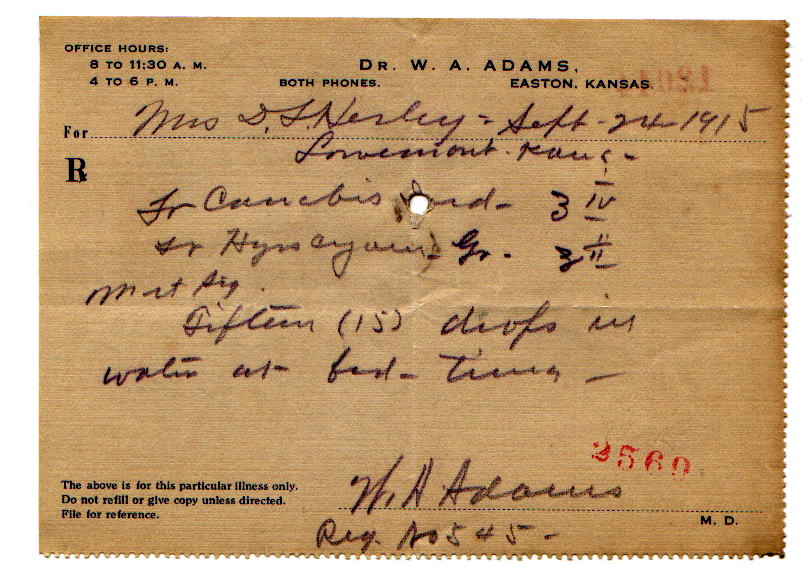 OFFICE HOURS:
8 TO 11:30 A. M.
4 TO 6 P. M.
DR. W. A. ADAMS,
BOTH PHONES.
EASTON, KANSAS.
For Mrs D. S. Sept - 24 - 1915
Lowemont - Kans -
R
Tr Cannabis Ind - ʒ IV
Tr Gr - ʒ II
M et Sig.
Fifteen (15) drops in
water at bed - time -
2560
The above is for this particular illness only.
Do not refill or give copy unless directed.
File for reference.
W. A. Adams
M. D.
Reg. No 545 -